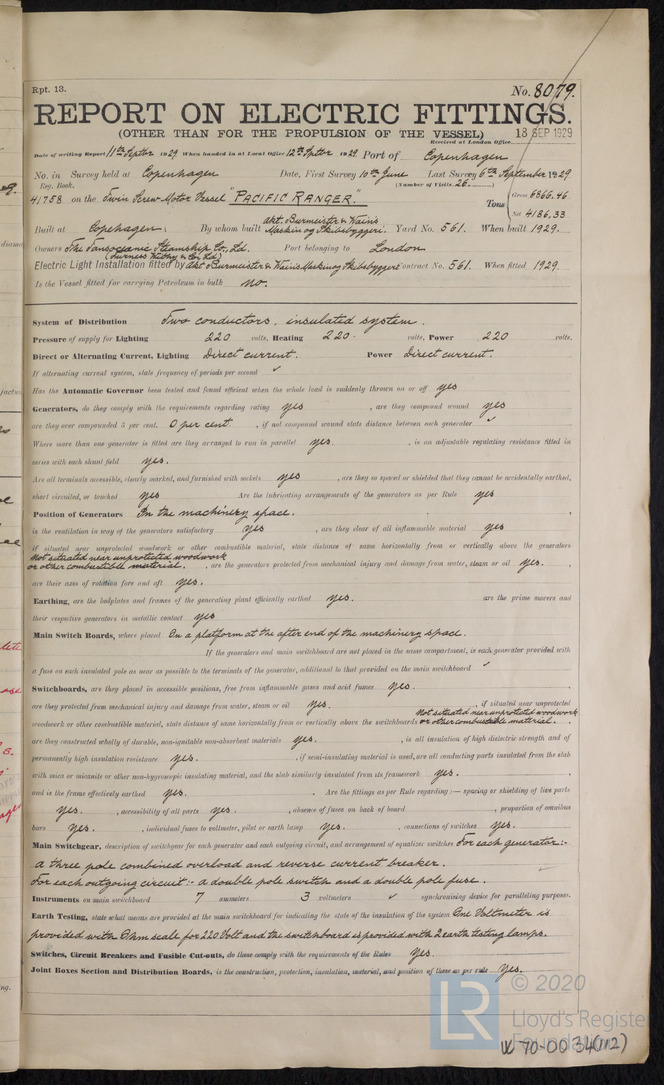 Rpt. 13.
No. 8079.
REPORT ON ELECTRIC FITTINGS.
(OTHER THAN FOR THE PROPULSION OF THE VESSEL)
13 SEP 1929
Received at London Office
Date of writing Report 11th Septbr 1929 When handed in at Local Office 12th Septbr 1929 Port of Copenhagen
No. in Survey held at Copenhagen Date, First Survey 10th June Last Survey 6th September 1929
Reg. Book. (Number of Visits 26.)
41758 on the Twin Screw Motor Vessel "PACIFIC RANGER." Tons { Gross 6866.46
Net 4186.33
Built at Copenhagen. By whom built Akt. Burmeister & Wains Maskin og Skibsbyggeri. Yard No. 561. When built 1929.
Owners The Transoceanic Steamship Co., Ld. Port belonging to London
(Furness Withy & Co. Ld.)
Electric Light Installation fitted by Akt. Burmeister & Wains Maskin og Skibsbyggeri Contract No. 561. When fitted 1929.
Is the Vessel fitted for carrying Petroleum in bulk no.
System of Distribution Two conductors, insulated system.
Pressure of supply for Lighting 220 volts, Heating 220. volts, Power 220 volts.
Direct or Alternating Current, Lighting Direct current. Power Direct current.
If alternating current system, state frequency of periods per second ✓
Has the Automatic Governor been tested and found efficient when the whole load is suddenly thrown on or off yes
Generators, do they comply with the requirements regarding rating yes , are they compound wound yes
are they over compounded 5 per cent. 0 per cent. , if not compound wound state distance between each generator ✓
Where more than one generator is fitted are they arranged to run in parallel yes. , is an adjustable regulating resistance fitted in
series with each shunt field yes.
Are all terminals accessible, clearly marked, and furnished with sockets yes , are they so spaced or shielded that they cannot be accidentally earthed,
short circuited, or touched yes Are the lubricating arrangements of the generators as per Rule yes
Position of Generators In the machinery space.
is the ventilation in way of the generators satisfactory yes , are they clear of all inflammable material yes
if situated near unprotected woodwork or other combustible material, state distance of same horizontally from or vertically above the generators
Not situated near unprotected woodwork
or other combustible material. , are the generators protected from mechanical injury and damage from water, steam or oil yes. ,
are their axes of rotation fore and aft yes.
Earthing, are the bedplates and frames of the generating plant efficiently earthed yes. are the prime movers and
their respective generators in metallic contact yes
Main Switch Boards, where placed On a platform at the after end of the machinery space.
If the generators and main switchboard are not placed in the same compartment, is each generator provided with
a fuse on each insulated pole as near as possible to the terminals of the generator, additional to that provided on the main switchboard ✓
Switchboards, are they placed in accessible positions, free from inflammable gases and acid fumes yes. ,
are they protected from mechanical injury and damage from water, steam or oil yes. , if situated near unprotected
woodwork or other combustible material, state distance of same horizontally from or vertically above the switchboards Not situated near unprotected woodwork or other combustible material. ,
are they constructed wholly of durable, non-ignitable non-absorbent materials yes. , is all insulation of high dielectric strength and of
permanently high insulation resistance yes. , if semi-insulating material is used, are all conducting parts insulated from the slab
with mica or micanite or other non-hygroscopic insulating material, and the slab similarly insulated from its framework yes. ,
and is the frame effectively earthed yes. . Are the fittings as per Rule regarding:— spacing or shielding of live parts
yes. , accessibility of all parts yes. , absence of fuses on back of board , proportion of omnibus
bars yes. , individual fuses to voltmeter, pilot or earth lamp yes. , connections of switches yes.
Main Switchgear, description of switchgear for each generator and each outgoing circuit, and arrangement of equalizer switches For each generator:-
a three pole combined overload and reverse current breaker.
For each outgoing circuit:- a double pole switch and a double pole fuse.
Instruments on main switchboard 7 ammeters 3 voltmeters ✓ synchronising device for paralleling purposes.
Earth Testing, state what means are provided at the main switchboard for indicating the state of the insulation of the system One Voltmeter is
provided with Ohm scale for 220 Volt and the switchboard is provided with 2 earth testing lamps.
Switches, Circuit Breakers and Fusible Cut-outs, do these comply with the requirements of the Rules yes.
Joint Boxes Section and Distribution Boards, is the construction, protection, insulation, material, and position of these as per rule yes.
© 2020
LR
Lloyd's Register
Foundation
W 70-0034(1/2)